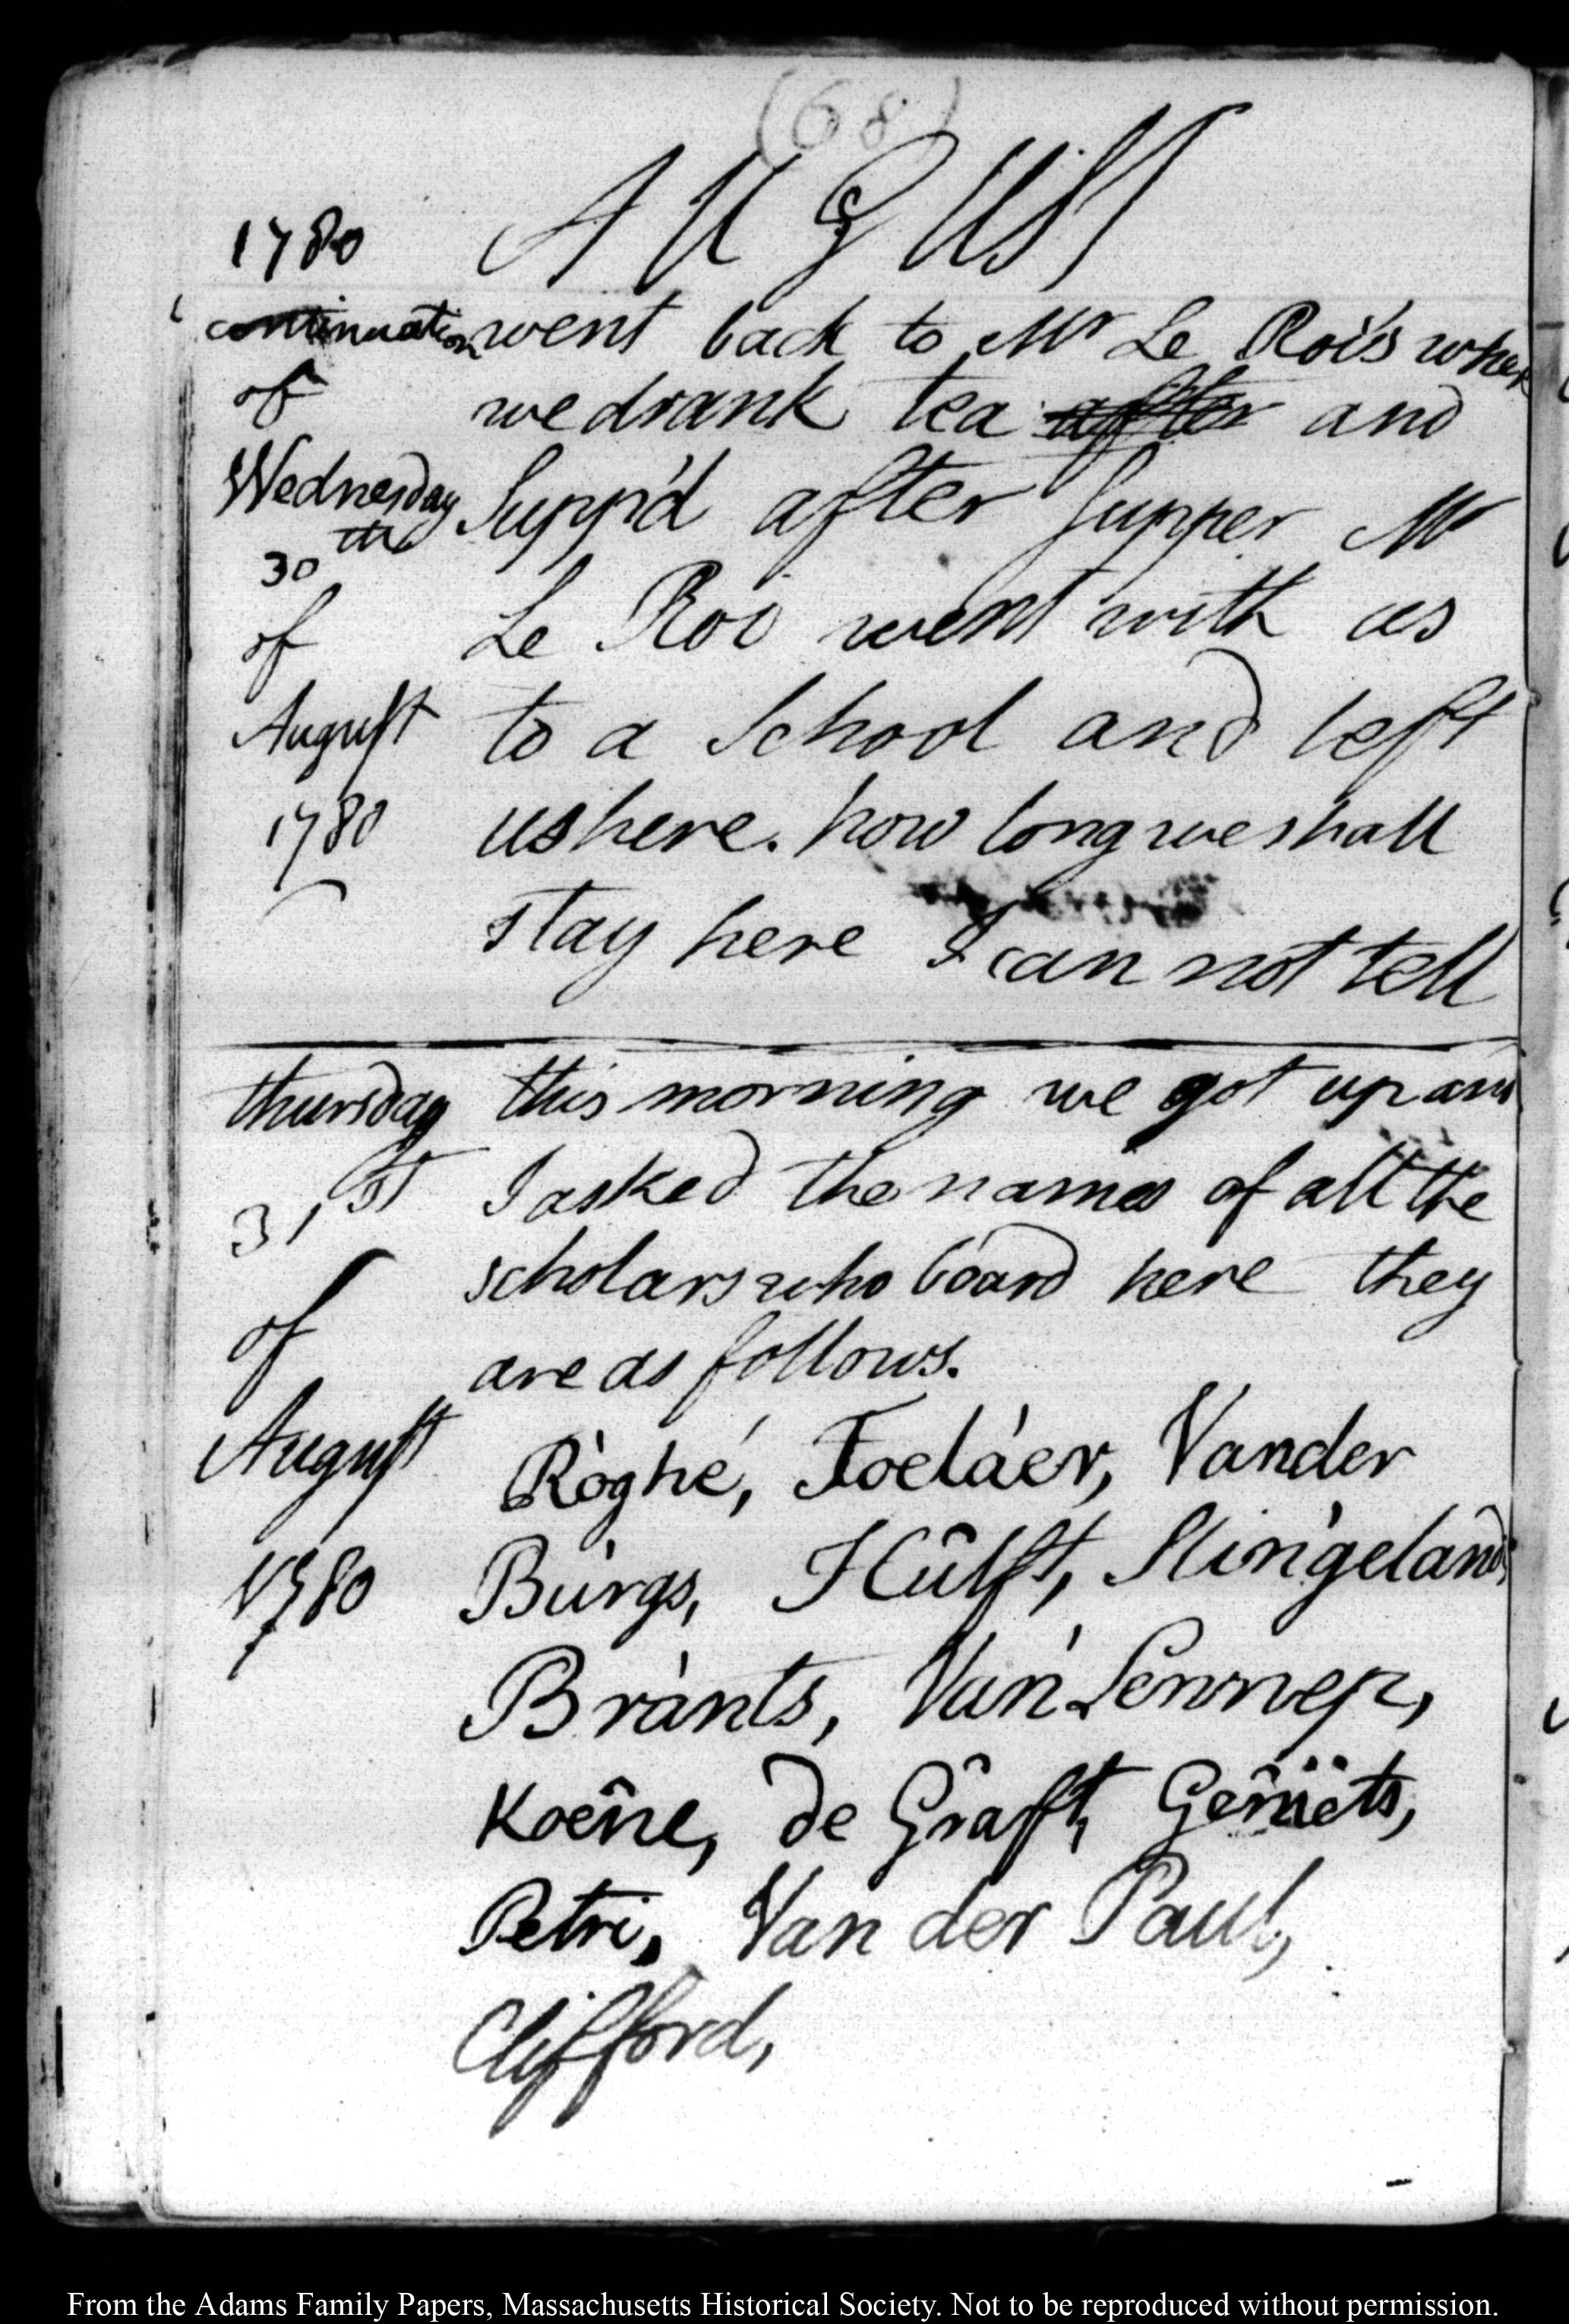 (68)
1780 AUGUST
continuation went back to Mr Le Roi's where
of we drank tea after and
Wednesday Supp'd after Supper Mr
30th Le Roi went with us
of to a School and left
August us here. how long we shall
1780 stay here I can not tell
thursday this morning we got up and
31st I asked the names of all the
of scholars who board here they
are as follows.
August Ròghé, Toeláer, Vander
1780 Bùrgs, Hûlft, Slingeland,
Brànts, Van Lennep,
Koêne, de Grâft, Gênüets,
Petri, Van der Paul,
Clifford,
From the Adams Family Papers, Massachusetts Historical Society. Not to be reproduced without permission.